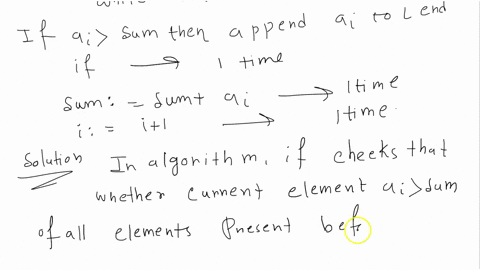 If ai > Sum then append ai to L end
if → 1 time
Sum: = Sum + ai → 1 time
i: = i+1 → 1 time.
Solution In algorithm, if checks that
whether current element ai > Sum
of all elements Present bef